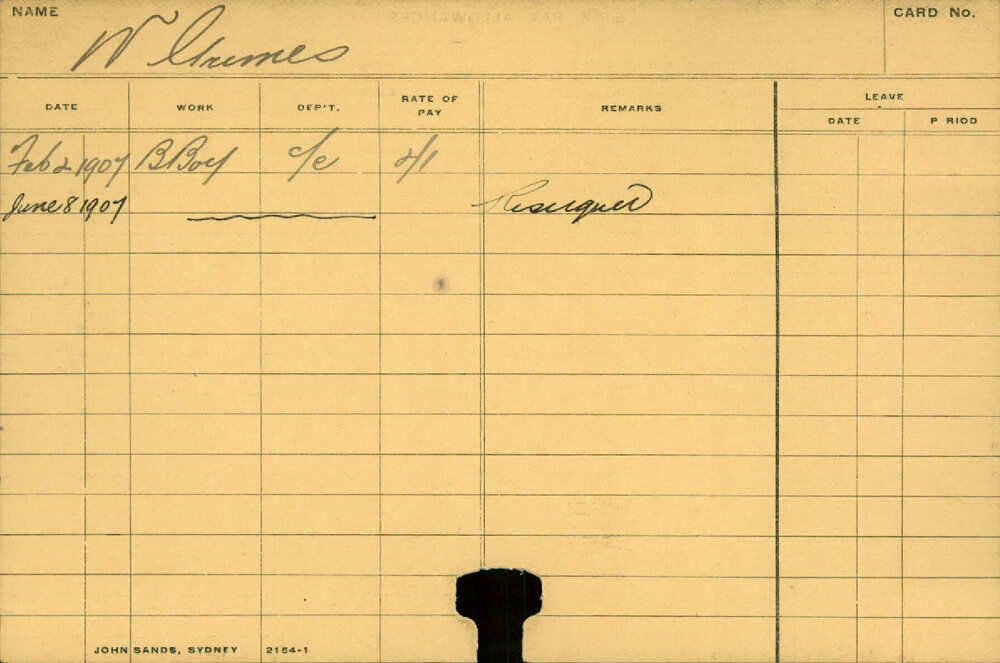 NAME
CARD No.
W Grimes
DATE WORK DEP'T. RATE OF PAY REMARKS LEAVE
DATE P RIOD
Feb 2 1907 B Boy c/e 2/1
June 8 1907 Resigned
JOHN SANDS, SYDNEY 2154-1